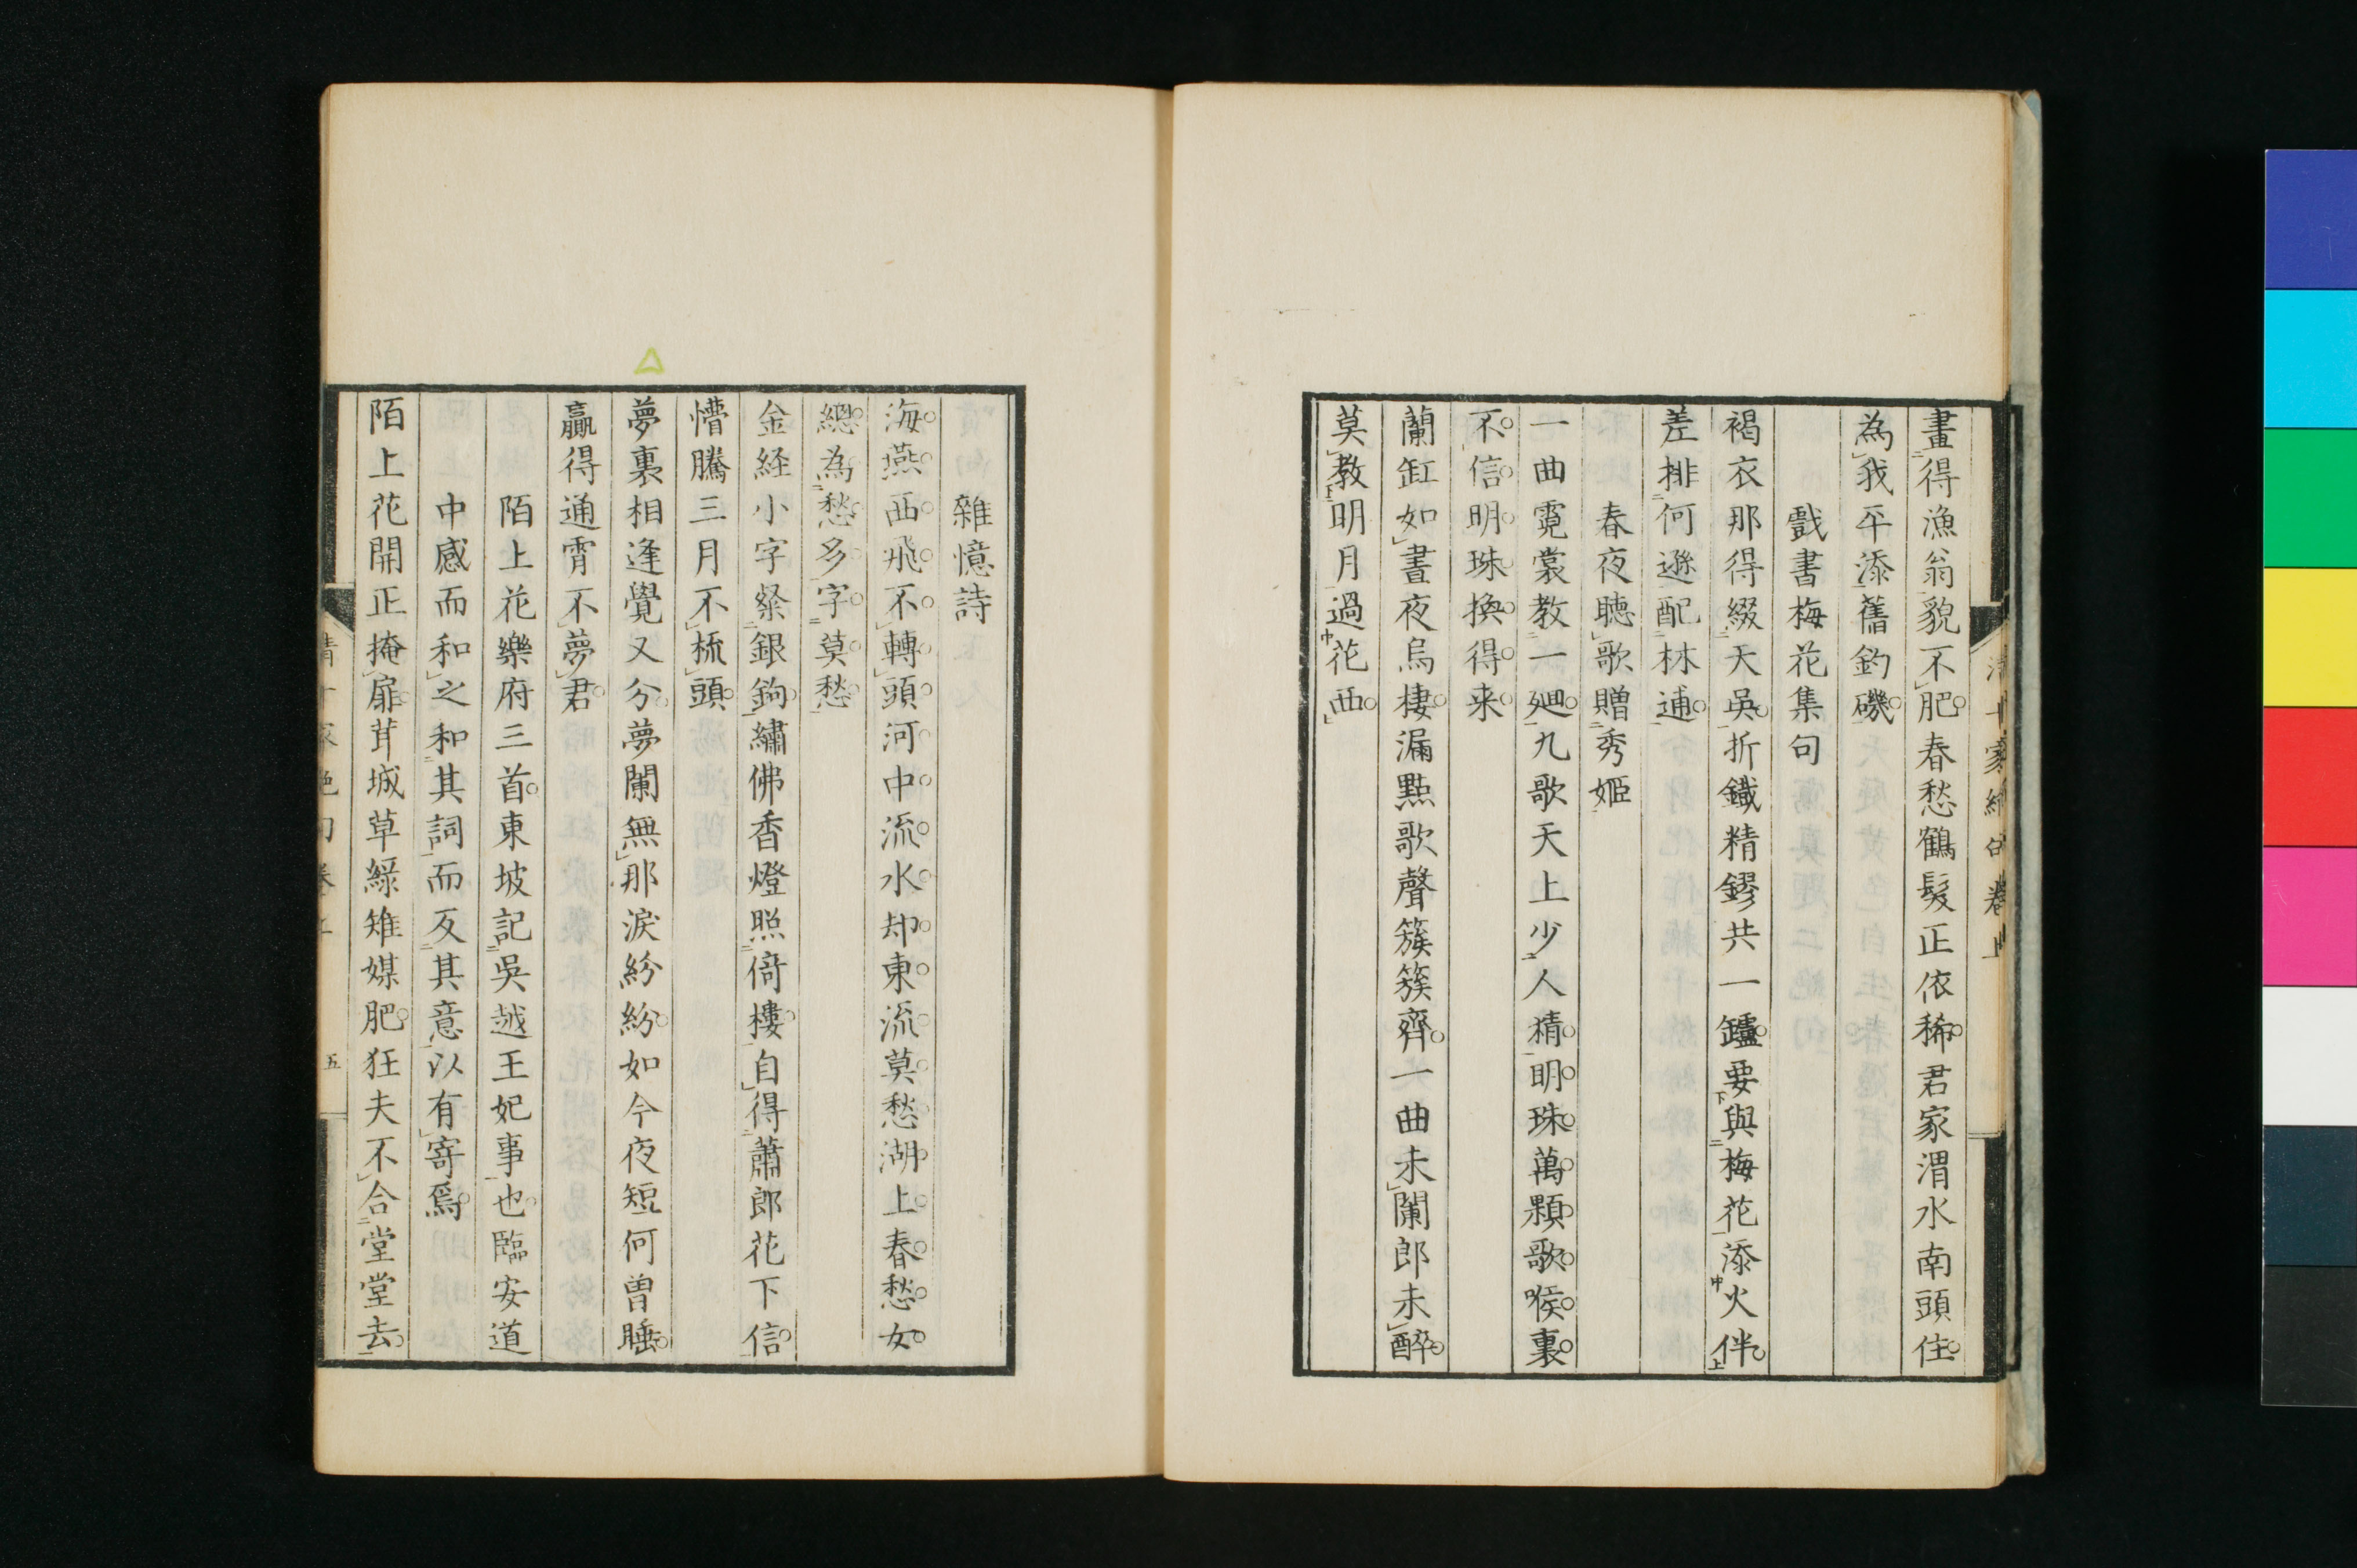 畫得漁翁貌不肥春愁鶴髮正依稀君家渭水南頭住
為我平添舊釣磯
戲書梅花集句
褐衣那得綴天吳折鐵精鏐共一鑪要與梅花添火伴
差排何遜配林逋
春夜聽歌贈秀姬
一曲霓裳教一廻九歌天上少人猜明珠萬顆歌喉裏
不信明珠換得来
蘭缸如晝夜烏棲漏點歌聲簇簇齊一曲未闌郎未醉
莫教明月過花西
雜憶詩
海燕西飛不轉頭河中流水却東流莫愁湖上春愁女
總為愁多字莫愁
金経小字粲銀鉤繡佛香燈照倚樓自得蕭郎花下信
懵騰三月不梳頭
夢裏相逢覺又分夢闌無那淚紛紛如今夜短何曾睡
贏得通霄不夢君
陌上花樂府三首東坡記吳越王妃事也臨安道
中感而和之和其詞而反其意以有寄焉
陌上花開正掩扉茸城草綠雉媒肥狂夫不合堂堂去
五